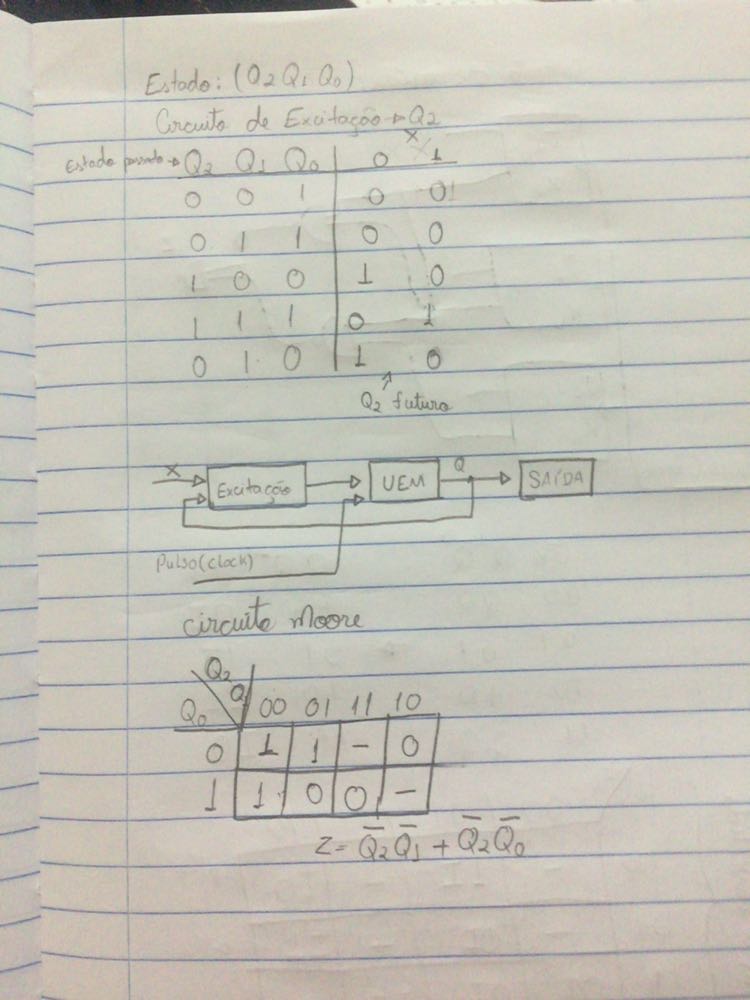 Estado: (Q2 Q1 Q0)
Circuito de Excitação → Q2
x
Estado passado → Q2 Q1 Q0 0 1
0 0 1 0 0
0 1 1 0 0
1 0 0 1 0
1 1 1 0 1
0 1 0 1 0
Q2 futuro
X Excitação UEM Q SAÍDA
Pulso(clock)
circuito Moore
Q2
Q0 Q1 00 01 11 10
0 1 1 - 0
1 1 0 0 -
Z = Q̅2 Q̅1 + Q̅2 Q̅0